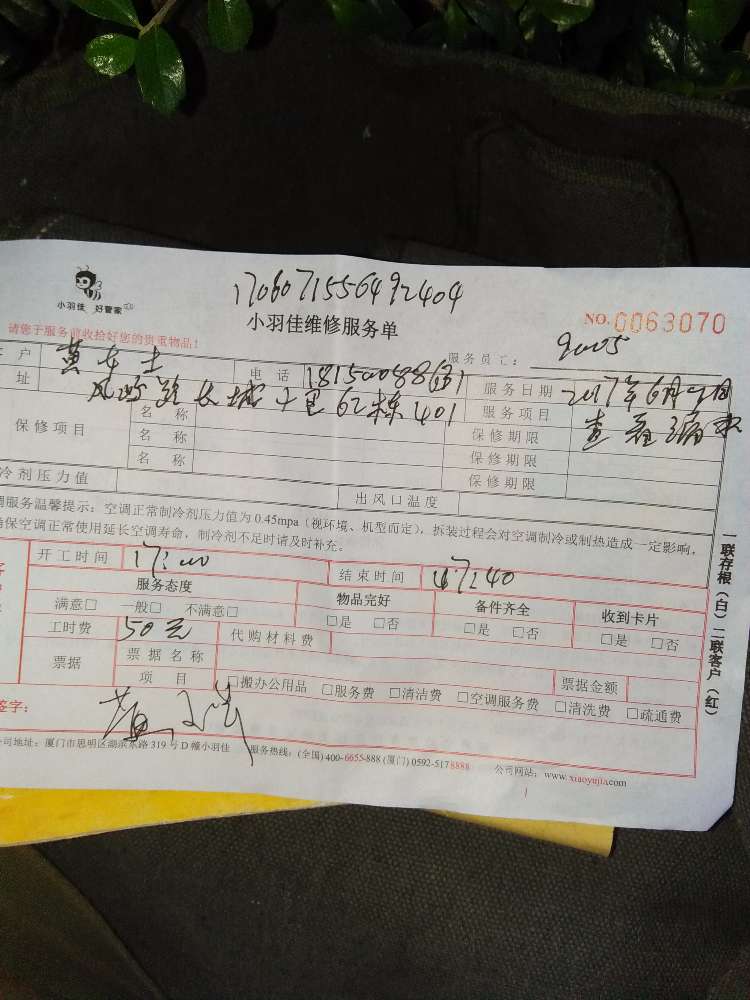 170607155649 2404
小羽佳 好管家
小羽佳维修服务单
NO.0063070
请您于服务前收拾好您的贵重物品!
服务员工: 9005
户 黄女士 电话 服务日期 2017年6月 日
址 长城 里 62栋 401 服务项目 查看漏水
保修项目 名称 保修期限
名称 保修期限
名称 保修期限
冷剂压力值 出风口温度
调服务温馨提示:空调正常制冷剂压力值为0.45mpa(视环境、机型而定),拆装过程会对空调制冷或制热造成一定影响,
确保空调正常使用延长空调寿命,制冷剂不足时请及时补充。
开工时间 17:00 结束时间 17:40
服务态度 物品完好 备件齐全 收到卡片
满意□ 一般□ 不满意□ □是 □否 □是 □否 □是 □否
工时费 50元 代购材料费
票据 票据名称 票据金额
项目 □搬办公用品 □服务费 □清洁费 □空调服务费 □清洗费 □疏通费
签字: 黄
公司地址:厦门市思明区湖滨东路319号D幢小羽佳 服务热线:(全国)400-6655-888 (厦门)0592-5178888 公司网站:www.xiaoyujia.com
一联存根(白)二联客户(红)